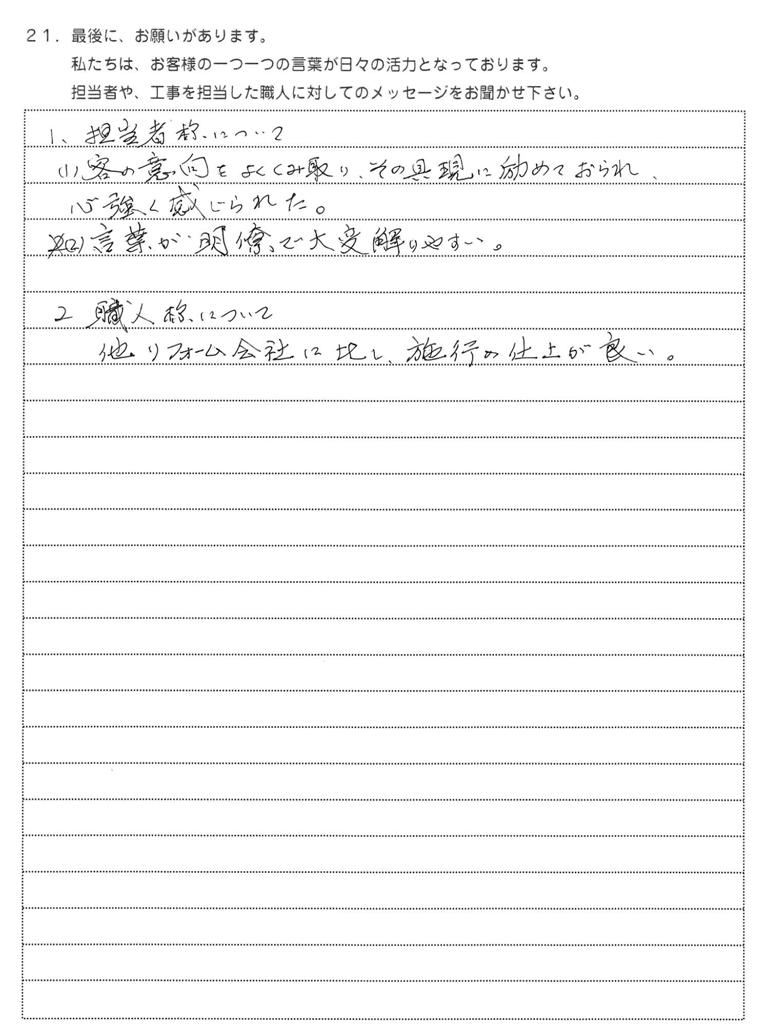 21．最後に、お願いがあります。
私たちは、お客様の一つ一つの言葉が日々の活力となっております。
担当者や、工事を担当した職人に対してのメッセージをお聞かせ下さい。
1、担当者様について
(1)客の意向をよくくみ取り、その具現に励めておられ、
心強く感じられた。
(2)言葉が明僚で大変解りやすい。
2 職人様について
他リフォーム会社に比し、施行の仕上が良い。